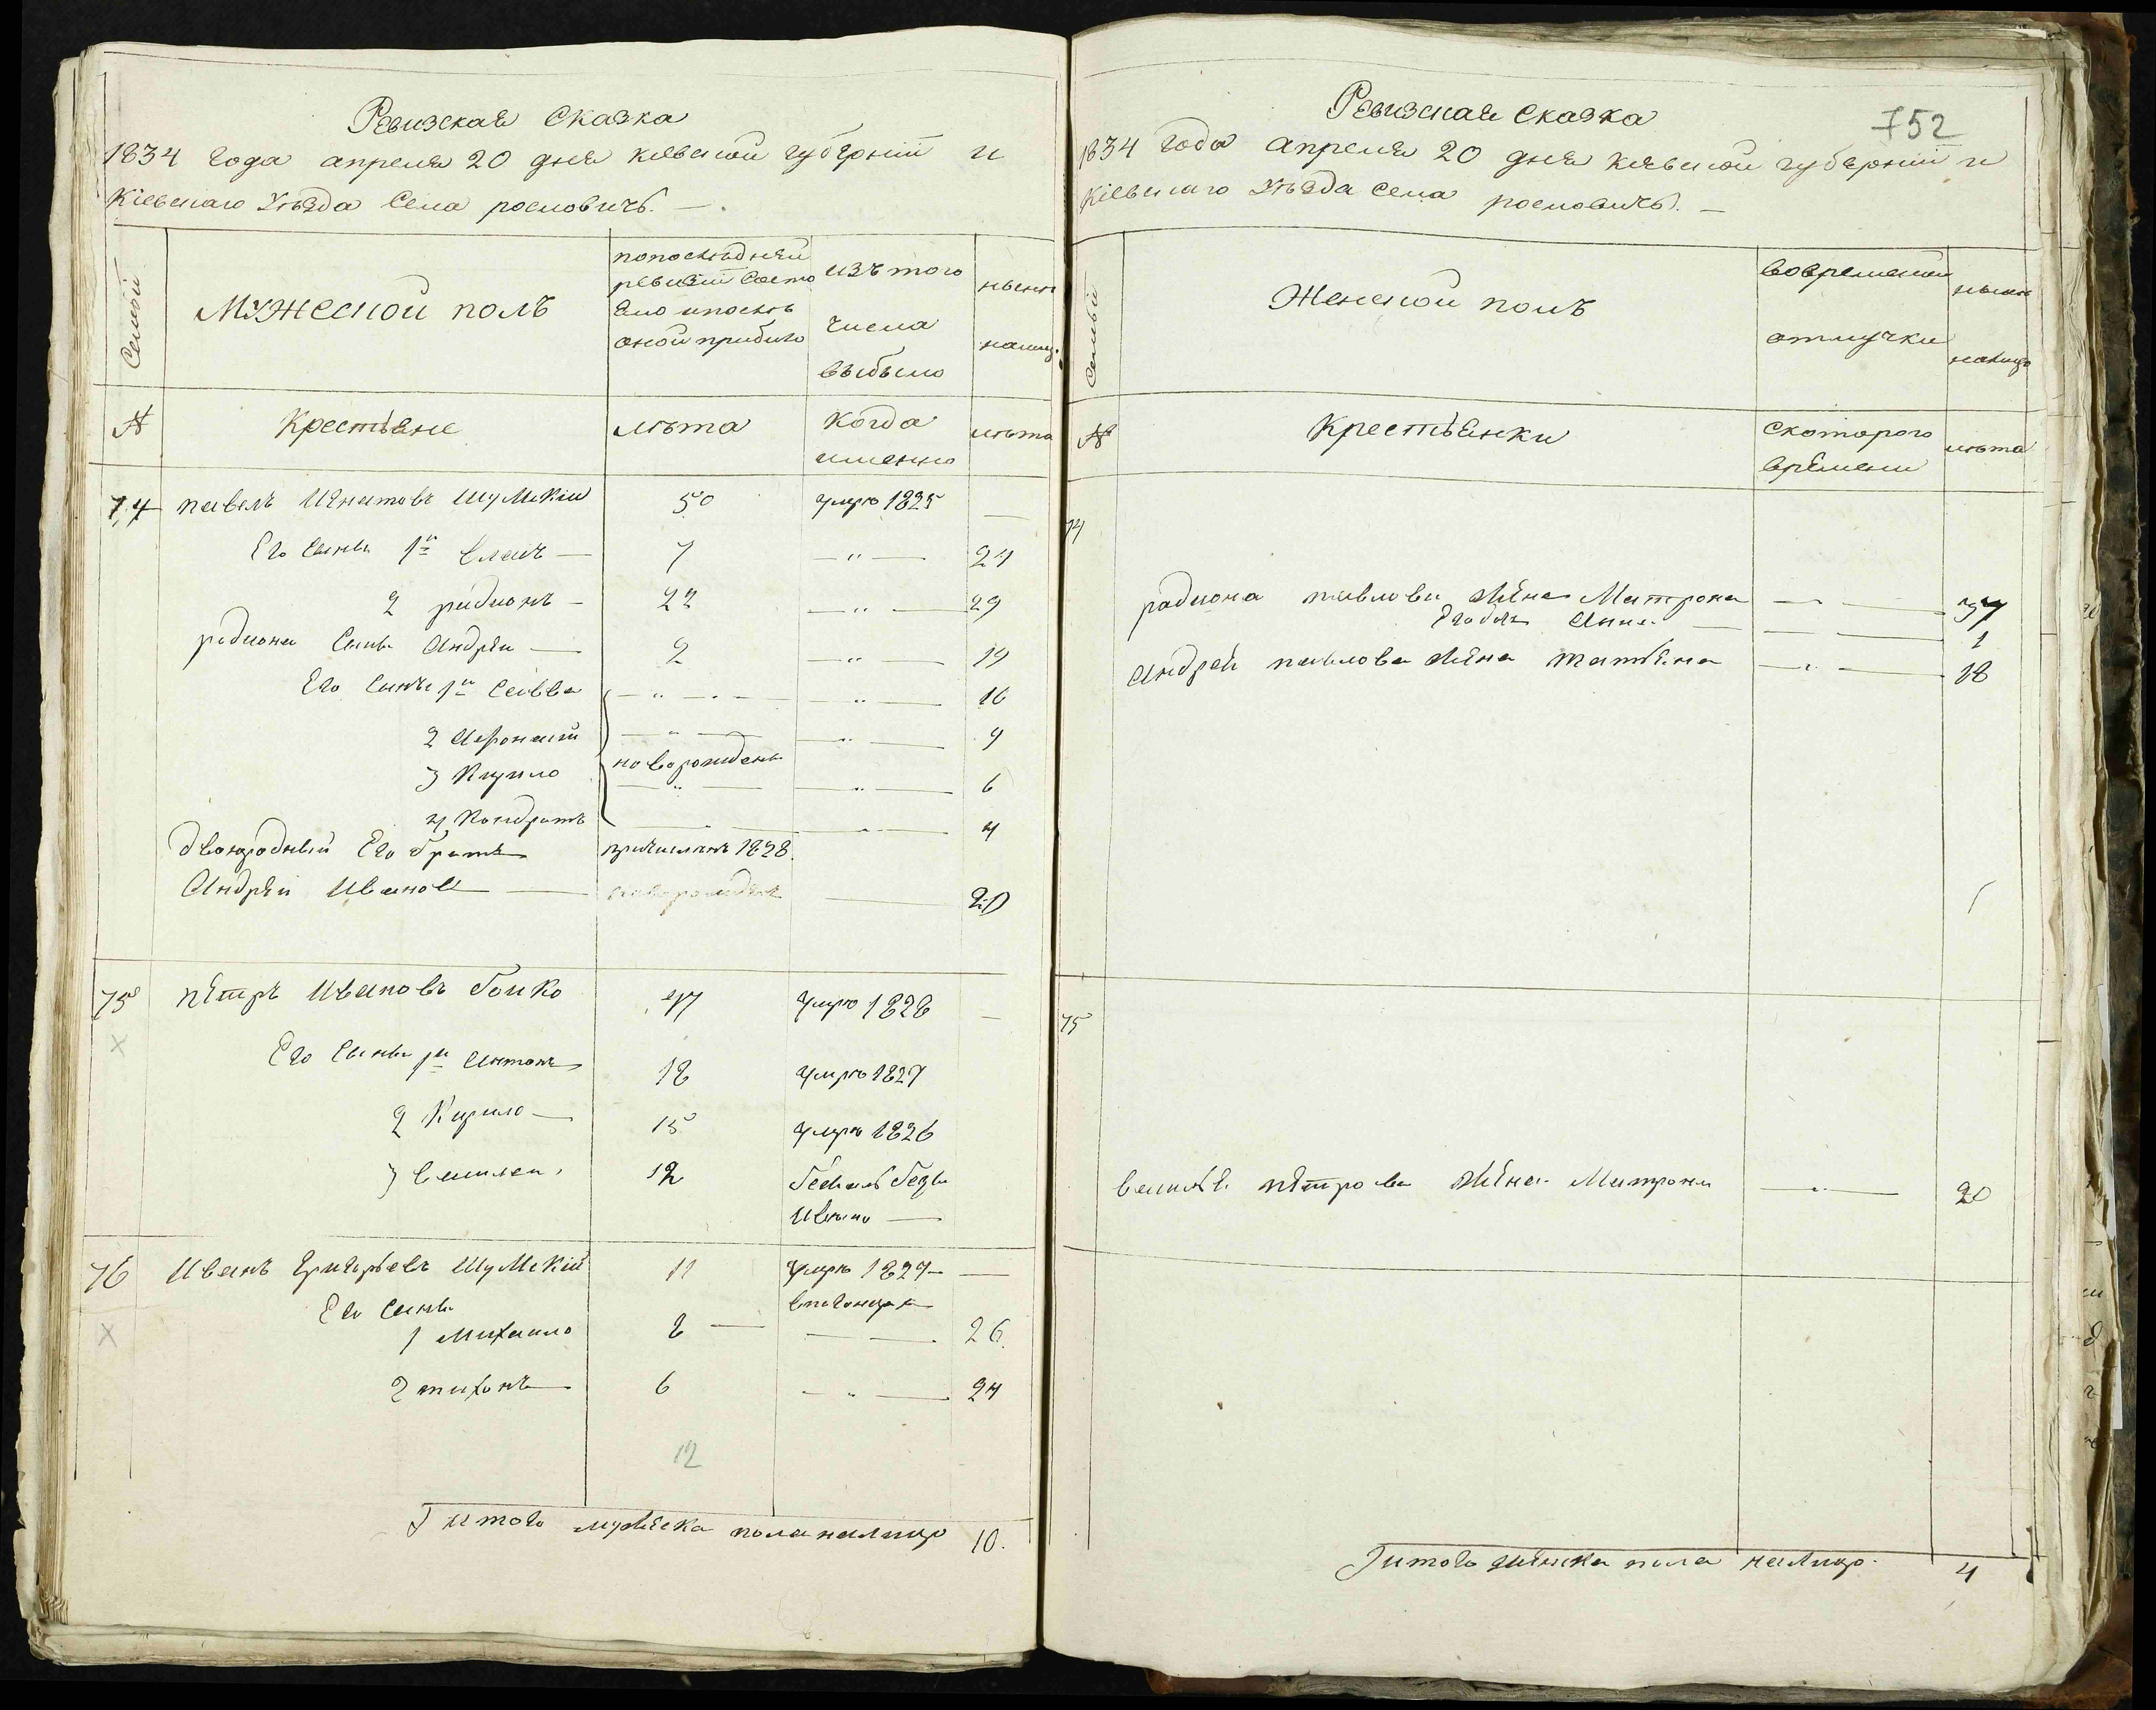 Ревизская Сказка
1834 года апреля 20 дня киевской губернии и
Кіевскаго Уѣзда Села рословичъ. —
Семьи
Мужеской полъ
попоследней
ревизіи Состо
Яло ипослѣ
оной прибыло
изъ того
числа
выбыло
нынѣ
налицо
№
Крестьяне
лѣта
Когда
именно
лѣта
74 павелъ Игнатовъ Шумскій 50 умре 1825 —
Его Сынъ 1й Власъ — 7 — " — 21
2 радионъ — 22 — " — 29
радиона Сынъ Андрѣй — 2 — " — 14
Его Сынъ 1й Савва — " — — " — 16
2 Афонасій — " — — " — 9
3 Кирило новорожденъ — " — 6
4 Кондратъ — — " — 4
двоюродный Его братъ причисленъ 1828.
Андрѣй Иванов — новорожденъ — 20
75 пѣтръ Ивановъ бойко 47 умре 1828 —
Его Сынъ 1й Антонъ 18 умре 1827
2 Кирило — 15 умре 1826
3 Василей 12 бежалъ безъ
Извѣстно —
76 Иванъ Григорьевъ Шумскій 11 умре 1827 —
Его Сынъ
1 Михаило 8 — — — 26.
2 тихонъ — 6 — " — 24
12
Итого мужеска пола налицо 10.
Ревизская Сказка
752
1834 года апреля 20 дня киевской губернии и
Кіевскаго Уѣзда Села рословичъ. —
Семьи
Женской полъ
вовременной
отлучки
нынѣ
налицо
№
Крестьянки
Скоторого
времени
лѣта
74
радиона павлова жѣна Матрона — — 37
Его дочь Анна — — — 1
Андрей павлова жѣна татьяна — " — 18
75
василья пѣтрова жѣна Матрона — " — 20
Итого жѣнска пола налицо. 4